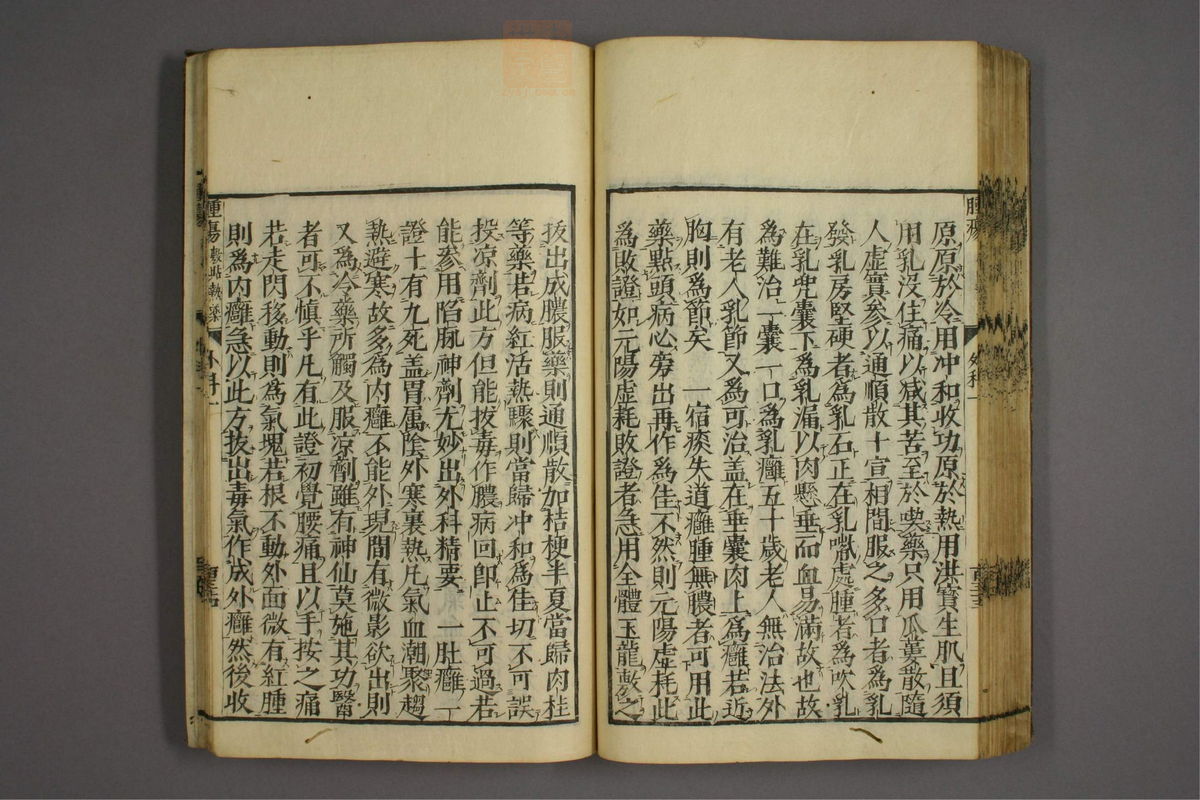 原原於冷用冲和收功原於熱用洪寳生肌且須
用乳没住痛以减其苦至於喫藥只用瓜蔞散隨
人虚實参以通順散十宣相間服之多口者為乳
發乳房堅硬者為乳石正在乳嘴處腫者為吹乳
在乳兜囊下為乳漏以肉懸垂而血易滿故也故
為難治一囊一口為乳癰五十歳老人無治法外
有老人乳節又為可治盖在垂囊肉上為癰若近
胸則為節矣　一宿痰失道癰腫無膿者可用此
藥點頭病必旁出再作為佳不然則元陽虚耗此
為敗證如元陽虚耗敗證者急用全體玉龍敷之
拔出成膿服藥則通順散加桔梗半夏當歸肉桂
等藥若病紅活熱驟則當歸冲和為佳切不可誤
投凉劑此方但能拔毒作膿病回即止不可過若
能参用陷脉神劑尤妙出外科精要　一肚癰一
證十有九死盖胃属陰外寒裏熱凡氣血潮聚趨
熱避寒故多為内癰不能外現間有微影欲出則
又為冷藥所觸及服凉劑雖有神仙莫施其功醫
者可不慎乎凡有此證初覺腰痛且以手按之痛
若走閃移動則為氣塊若根不動外面微有紅腫
則為内癰急以此方拔出毒氣作成外癰然後收
腫瘍
外科一